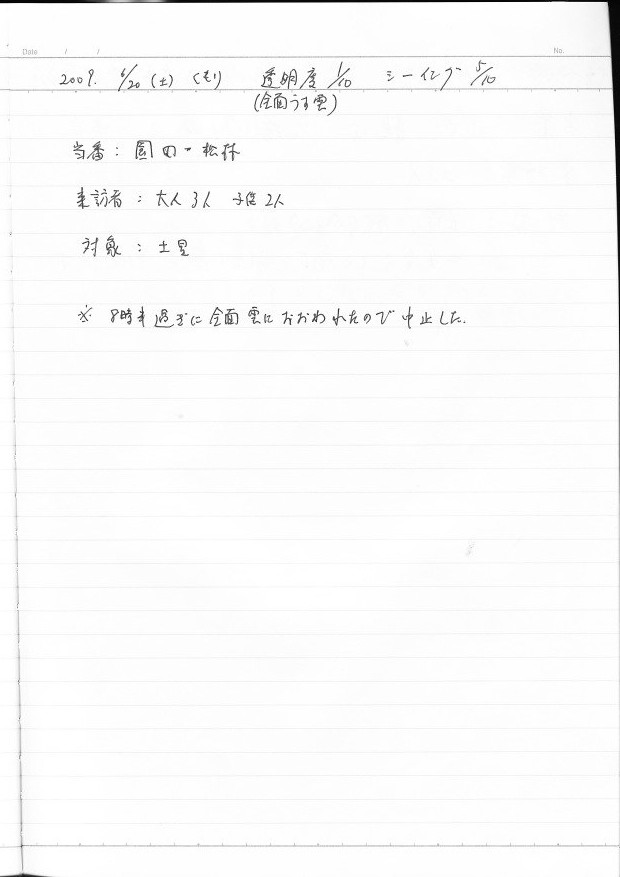 Date / / No.
2009. 6/20 (土) くもり 透明度 1/10 シーイング 5/10
(全面うす雲)
当番: 園田・松林
来訪者: 大人3人 子供2人
対象: 土星
※ 8時半過ぎに全面雲におおわれたので中止した.